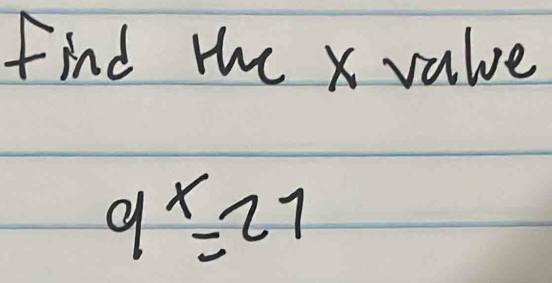 Find the x value
9^x = 27